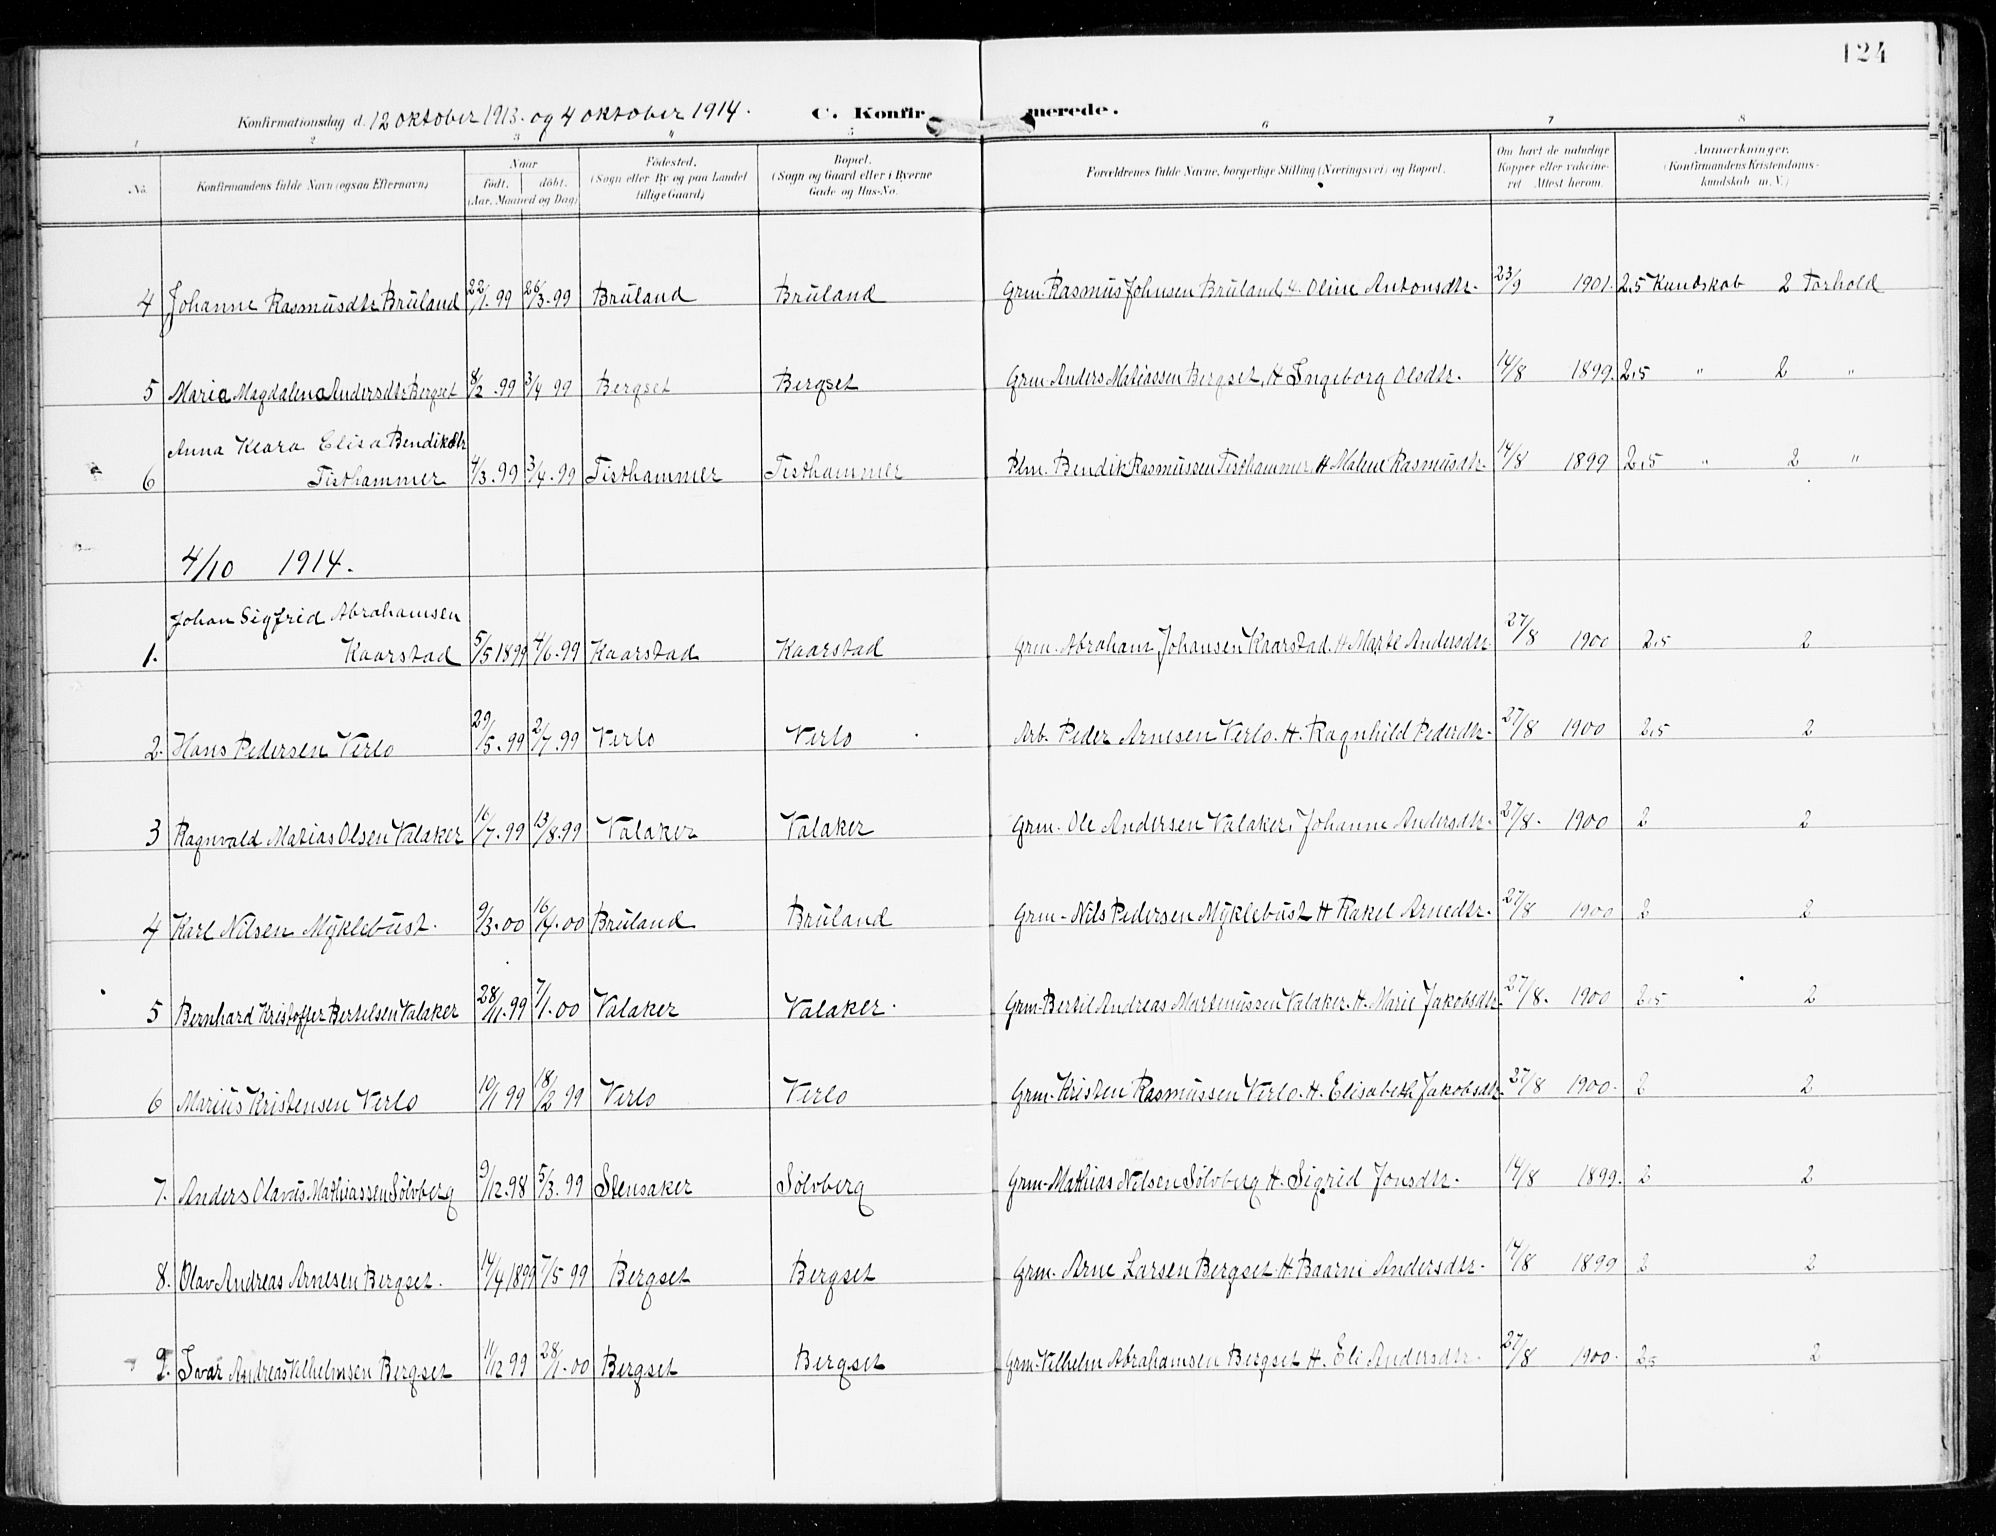 124
Konfirmationsdag d. 12 oktober 1913. og 4 oktober 1914. C. Konfirmerede.
1 2 3 4 5 6 7 8
No. Konfirmandens fulde Navn (ogsaa Efternavn) Naar født. døbt. (Aar, Maaned og Dag) Fødested. (Sogn eller By og paa Landet tillige Gaard) Bopæl. (Sogn og Gaard eller i Byerne Gade og Hus-No. Forældrenes fulde Navne, borgerlige Stilling (Næringsvei) og Bopæl. Om havt de naturlige Kopper eller vakcineret. Attest herom. Anmerkninger. (Konfirmandens Kristendomskundskab m. V.)
4 Johanne Rasmusdtr Brüland 22/1 99 26/3-99 Brüland Brüland Grm. Rasmus Johnsen Brüland & Oline Antonsdtr. 23/9 1901. 2,5 Kundskab 2 Forhold
5 Marie Magdalena Andersdtr Bergset 8/2 .99 3/4 99 Bergset Bergset Grm Anders Matiassen Bergset, H Ingeborg Olsdtr. 14/8 1899. 2,5 " 2 "
Anna Klara Elisa Bendiksdtr
6 Tisthammer 4/3.99 3/4.99 Tisthammer Tisthammer Plm. Bendik Rasmussen Tisthammer H Malene Rasmusdtr. 14/8 1899 2,5 " 2 "
4/10 1914.
Johan Sigfrid Abrahamsen
1. Kaarstad 5/5 1899 4/6.99 Kaarstad Kaarstad Grm. Abraham Johansen Kaarstad. H Marte Andersdtr. 27/8 1900 2,5 2
2. Hans Pedersen Verlo 29/5.99 2/7.99 Verlo Verlo Arb. Peder Arnesen Verlo. H. Ragnhild Pederdtr. 27/8 1900 2,5 2
3 Ragnvald Matias Olsen Valaker 16/7.99 13/8.99 Valaker Valaker Grm. Ole Andersen Valaker. Johanne Andersdtr. 27/8. 1900 2 2
4 Karl Nilsen Myklebust. 9/3.00 16/4.00 Brüland Brüland Grm. Nils Pedersen Myklebust H Rakel Arnedtr. 27/8 1900 2 2
5 Bernhard Kristoffer Bertelsen Valaker 28/11.99 7/1.00 Valaker Valaker. Grm. Bertil Andreas Martinussen Valaker. H. Marie Jakobsdtr. 27/8. 1900 2,5 2
6 Marius Kristensen Verlo 10/1 99 18/2 99 Verlo Verlo Grm. Kristen Rasmussen Verlo. H. Elisabeth Jakobsdtr. 27/8 1900. 2 2
7. Anders Olavus Mathiassen Sölvberg 9/12.98 5/3.99 Stensaker Sölvberg Grm. Mathias Nilsen Sölvberg H. Sigrid Jonsdtr. 14/8 1899. 2 2
8. Olav Andreas Arnesen Bergset. 14/4 1899 7/5 99 Bergset Bergset Grm. Arne Larsen Bergset. H. Baarni Andersdtr. 14/8 1899 2 2
9. Ivar Andreas Vilhelmsen Bergset 11/12 99 28/1.00 Bergset Bergset Grm. Vilhelm Abrahamsen Bergset H. Eli Andersdtr. 27/8 1900. 2,5 2